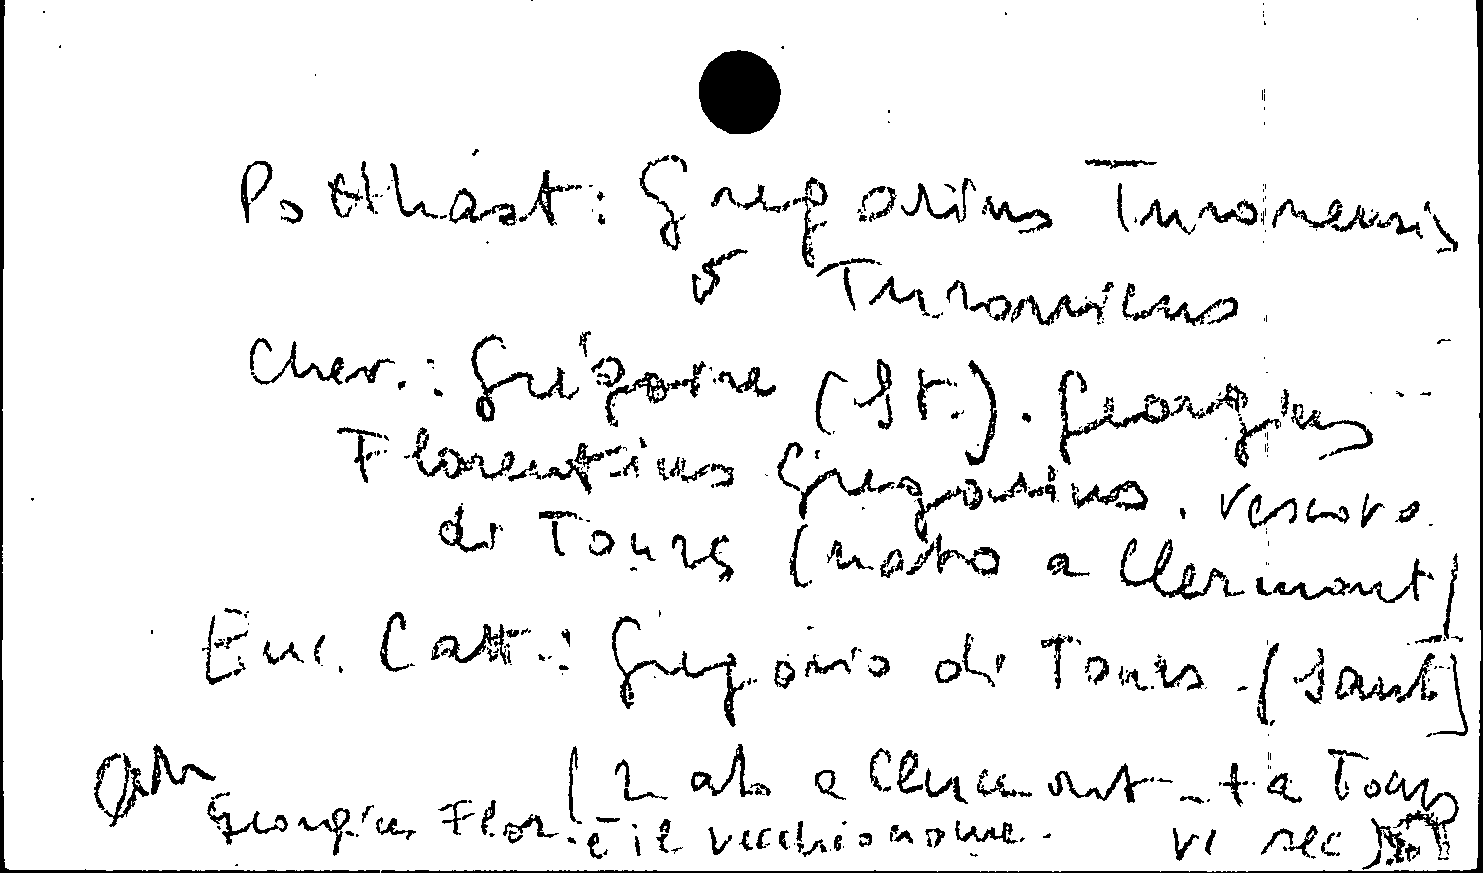 Potthast: Gregorius Turonensis
o Turonicus
Chev.: Grégoire (St.). Georgius
Florentius Gregorius, vescovo
di Tours (nato a Clermont)
Enc. Catt.: Gregorio di Tours. (Santo)
(nato a Clermont - + a Tours
Georgius Flor. è il vecchio nome. VI sec)